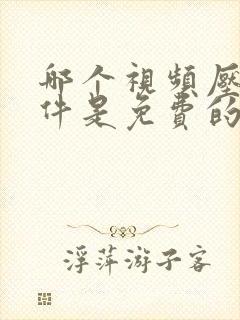 哪个視頻壓
件是免費的
浮萍游子客